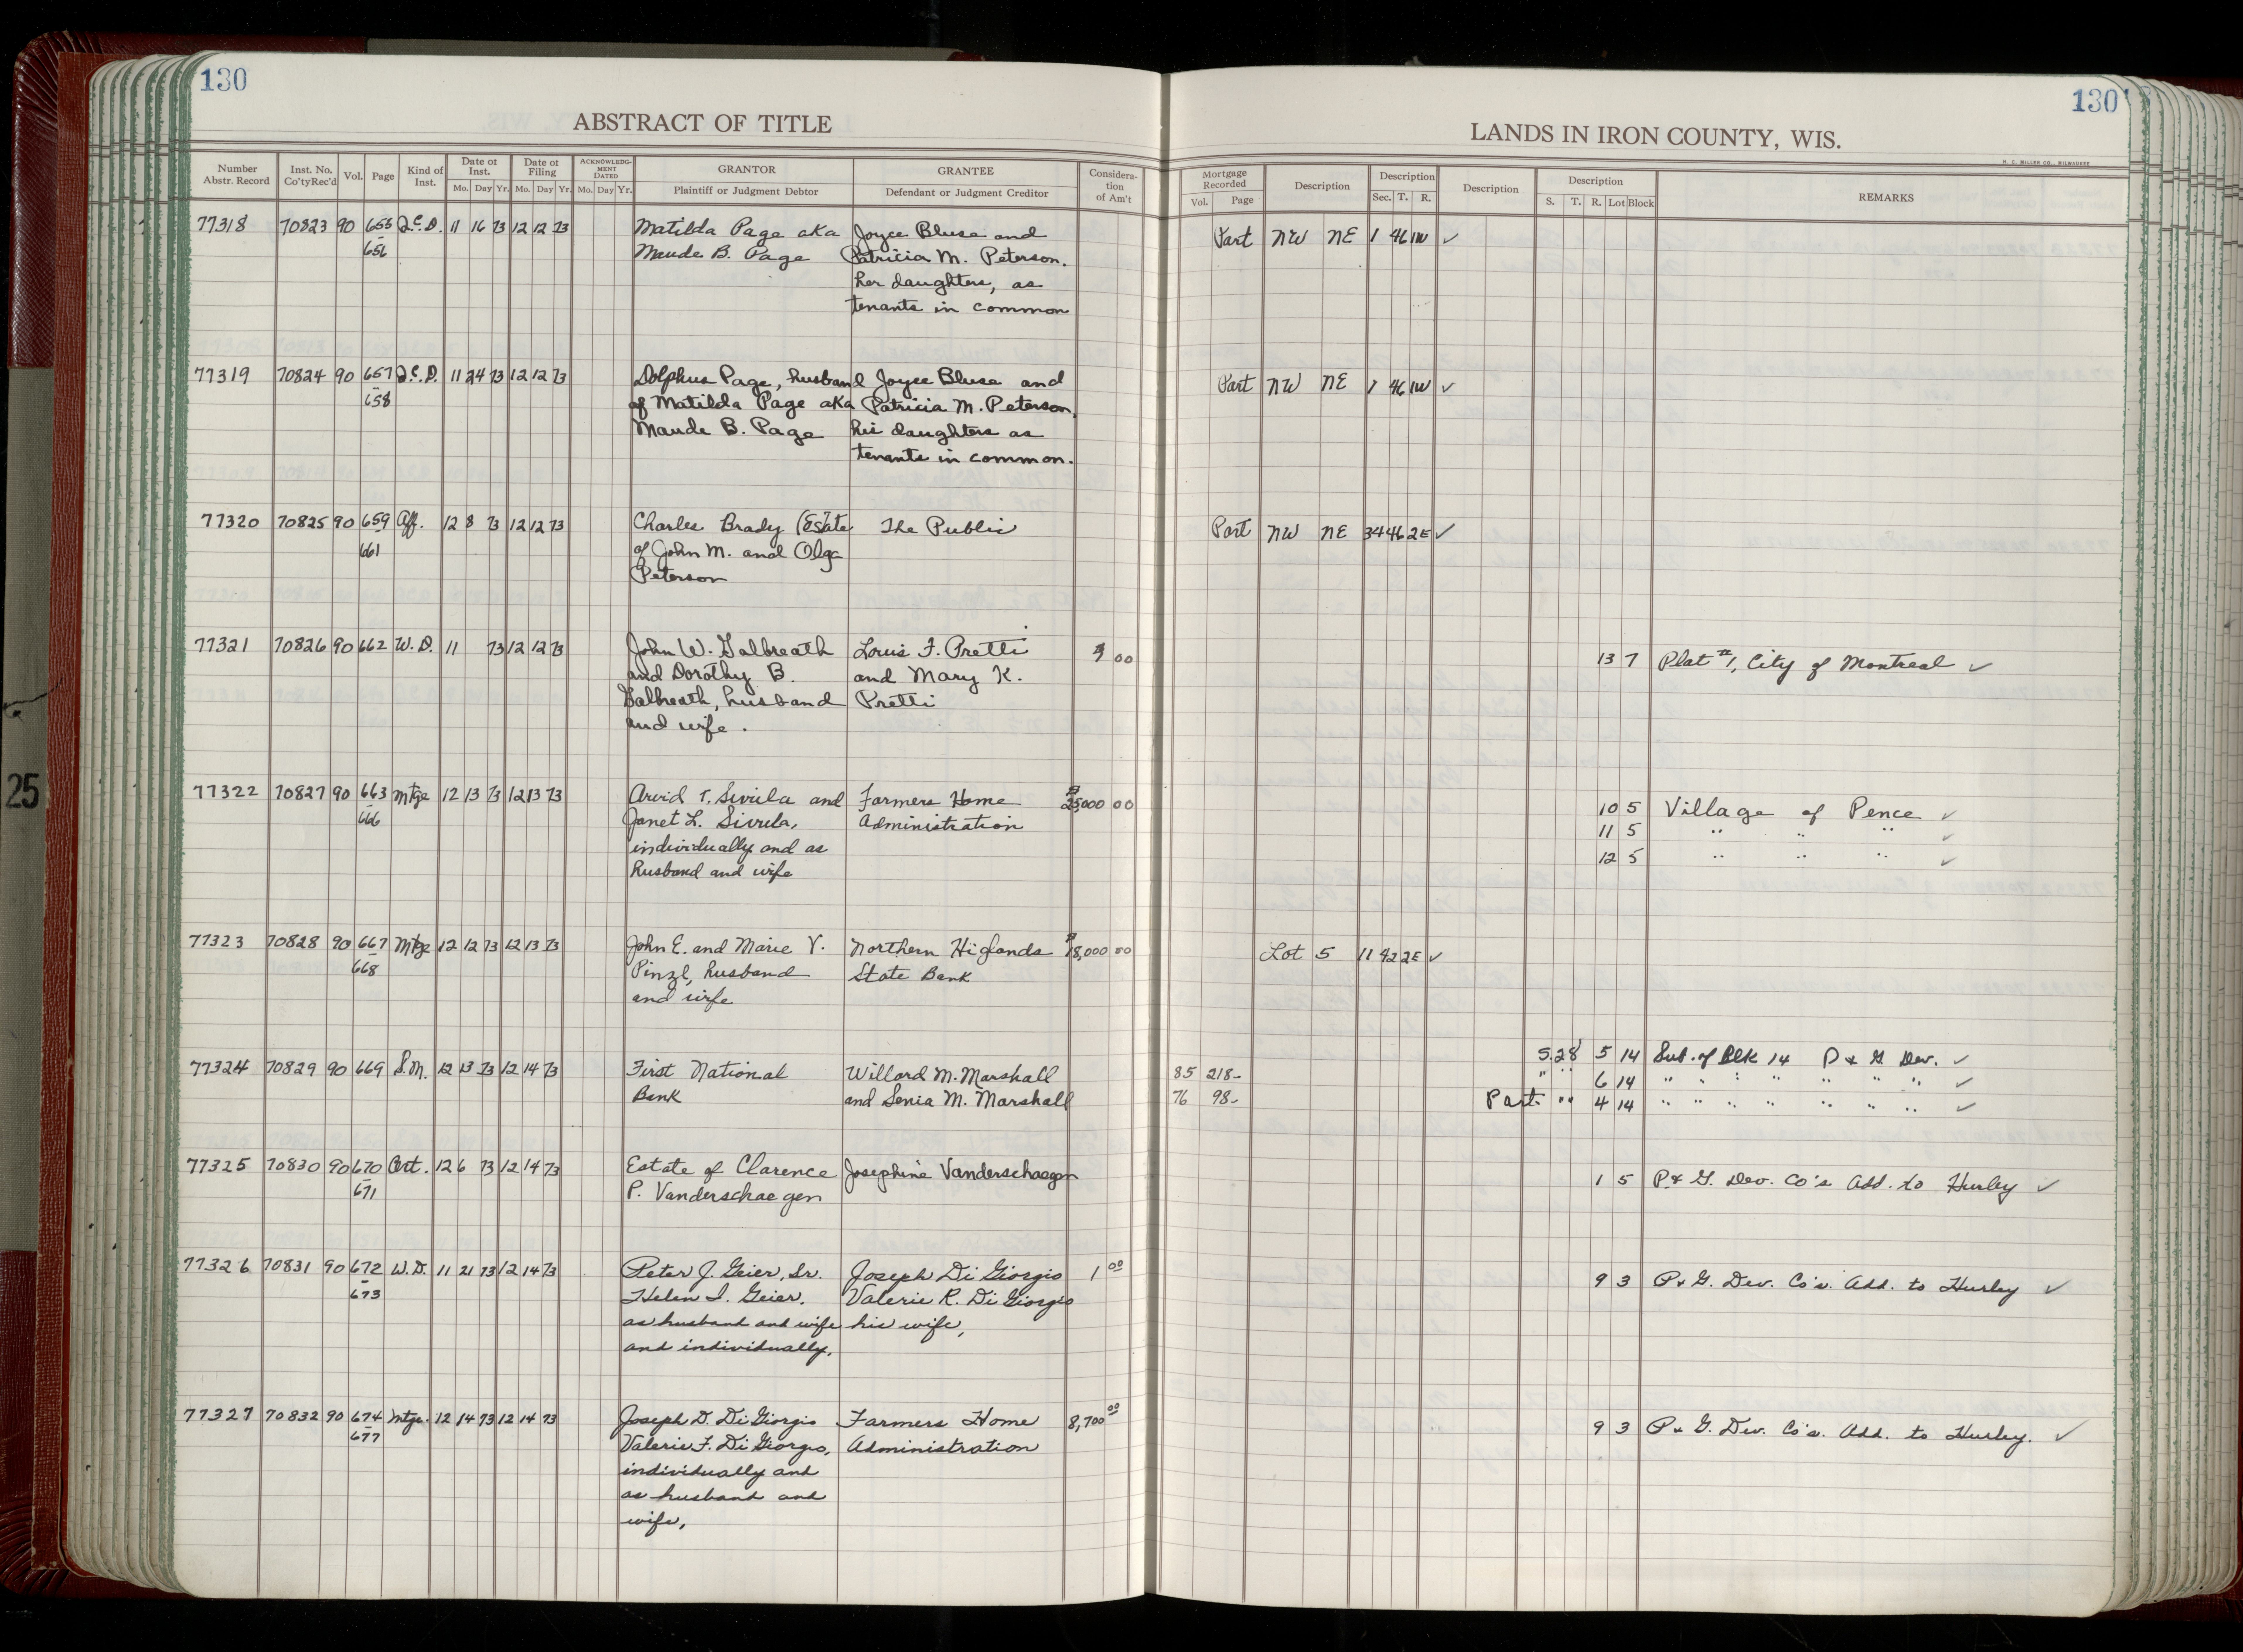 130
130
ABSTRACT OF TITLE
LANDS IN IRON COUNTY, WIS.
H. C. MILLER CO., MILWAUKEE
Number Abstr. Record | Inst. No. Co'ty Rec'd | Vol. | Page | Kind of Inst. | Date of Inst. Mo. Day Yr. | Date of Filing Mo. Day Yr. | ACKNOWLEDGMENT DATED Mo. Day Yr. | GRANTOR Plaintiff or Judgment Debtor | GRANTEE Defendant or Judgment Creditor | Consideration of Am't | Mortgage Recorded Vol. Page | Description | Description Sec. T. R. | Description | Description S. T. R. Lot Block | REMARKS
77318 70823 90 655 2.C.D. 11 16 73 12 12 73 Matilda Page aka Joyce Bluse and Part NW NE 1 46 1W ✓
656 Maude B. Page Patricia M. Peterson.
her daughters, as
tenants in common
77319 70824 90 657 2.C.D. 11 24 73 12 12 73 Dolphus Page, husband Joyce Bluse and Part NW NE 1 46 1W ✓
658 of Matilda Page aka Patricia M. Peterson,
Maude B. Page his daughters as
tenants in common.
77320 70825 90 659 Aff. 12 8 73 12 12 73 Charles Brady (Estate The Public Part NW NE 34 46 2E ✓
661 of John M. and Olga
Peterson
77321 70826 90 662 W.D. 11 73 12 12 73 John W. Galbreath Louis F. Pretti 00 13 7 Plat #1, City of Montreal ✓
and Dorothy B. and Mary K.
Galbreath, husband Pretti
and wife.
77322 70827 90 663 Mtge 12 13 73 12 13 73 Arvid T. Sivula and Farmers Home $25,000 00 10 5 Village of Pence ✓
666 Janet L. Sivula, Administration 11 5 " " " ✓
individually and as 12 5 " " " ✓
husband and wife
77323 70828 90 667 Mtge 12 12 73 12 13 73 John E. and Marie V. Northern Higlands $18,000 00 Lot 5 11 42 2E ✓
668 Pinzl, husband State Bank
and wife
77324 70829 90 669 S.M. 12 13 73 12 14 73 First National Willard M. Marshall 85 218- S.28 5 14 Sub. of Blk 14 P & G. Dev. ✓
Bank and Senia M. Marshall 76 98- " " 6 14 " " " " " " " ✓
Part " " 4 14 " " " " " " " ✓
77325 70830 90 670 Cert. 12 6 73 12 14 73 Estate of Clarence Josephine Vanderschaegen 1 5 P. & G. Dev. Co's Add. to Hurley ✓
671 P. Vanderschaegen
77326 70831 90 672 W.D. 11 21 73 12 14 73 Peter J. Geier, Sr. Joseph Di Giorgio 1 00 9 3 P & G. Dev. Co's. Add. to Hurley ✓
673 Helen I. Geier. Valerie R. Di Giorgio
as husband and wife his wife,
and individually,
77327 70832 90 674 Mtge. 12 14 73 12 14 73 Joseph D. Di Giorgio Farmers Home 8,700 00 9 3 P & G. Dev. Co's. Add. to Hurley. ✓
677 Valerie F. Di Giorgio, Administration
individually and
as husband and
wife,
25